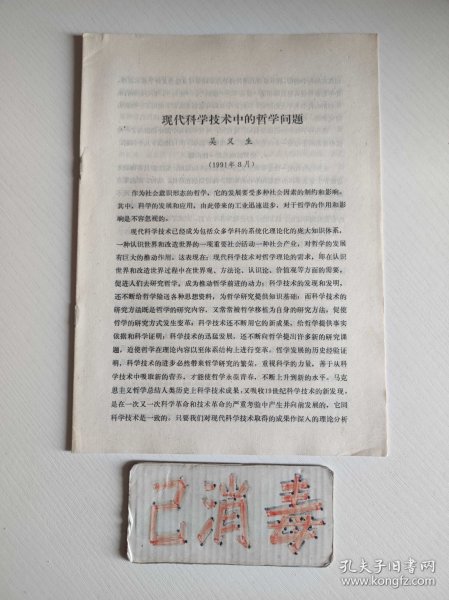 现代科学技术中的哲学问题
吴义生
(1991年8月)
作为社会意识形态的哲学，它的发展要受多种社会因素的制约和影响。
其中，科学的发展和应用，由此带来的工业迅速进步，对于哲学的作用和影
响是不容忽视的。
现代科学技术已经成为包括众多学科的系统化理论化的庞大知识体系，
一种认识世界和改造世界的一项重要社会活动一种社会产业，对哲学的发展
有巨大的推动作用。这表现在：现代科学技术对哲学理论的需求，即在认识
世界和改造世界过程中在世界观、方法论、认识论、价值观等方面的需要，
促进人们去研究哲学，成为推动哲学前进的动力；科学技术的发现和发明，
还不断给哲学输送各种思想资料，为哲学研究提供知识基础；而科学技术的
研究方法既是哲学的研究内容，又常常被哲学移植为自身的研究方法，促使
哲学的研究方式发生变革；科学技术还不断用它的新成果，给哲学提供事实
依据和科学证明；科学技术的迅猛发展，还不断向哲学提出许多新的研究课
题，迫使哲学在理论内容以至体系结构上进行变革。哲学发展的历史经验证
明，科学技术的进步必然带来哲学研究的繁荣，重视科学的力量，善于从科
学技术中吸取新的营养，才能使哲学永葆青春，不断上升到新的水平。马克
思主义哲学总结人类历史上科学技术成果，又吸收19世纪科学技术的新发现，
是在一次又一次科学革命和技术革命的严重考验中产生并向前发展的，它同
科学技术是一致的，只要我们对现代科学技术取得的成果作深入的理论分析
已消毒
孔夫子旧书网
www.kongfz.com